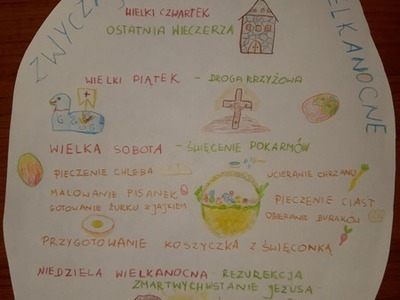 ZWYCZAJE
WIELKANOCNE
WIELKI CZWARTEK
OSTATNIA WIECZERZA
WIELKI PIĄTEK - DROGA KRZYŻOWA
WIELKA SOBOTA - ŚWIĘCENIE POKARMÓW
PIECZENIE CHLEBA
UCIERANIE CHRZANU
MALOWANIE PISANEK
PIECZENIE CIAST
GOTOWANIE ŻURKU Z JAJKIEM
OBIERANIE BURAKÓW
PRZYGOTOWANIE KOSZYCZKA Z ŚWIĘCONKĄ
NIEDZIELA WIELKANOCNA REZUREKCJA
ZMARTWYCHWSTANIE JEZUSA